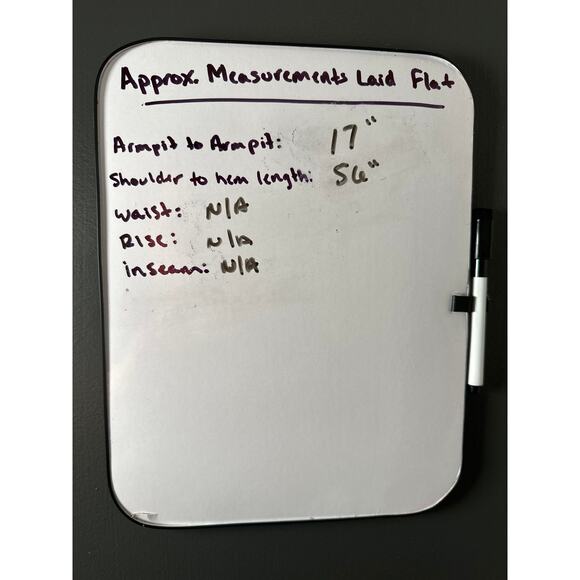 Approx. Measurements Laid Flat
Armpit to Armpit: 17"
Shoulder to hem length: 56"
waist: N/A
Rise: N/A
inseam: N/A